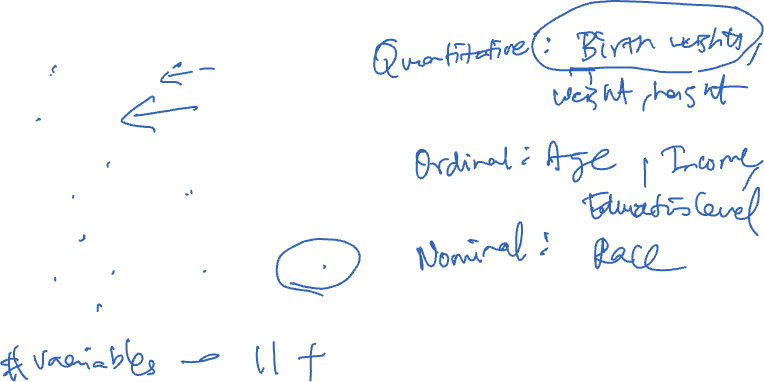 Quantitative: Birth weights,
weight, height
Ordinal: Age, Income,
Education level
Nominal: Race
# variables — 11 +